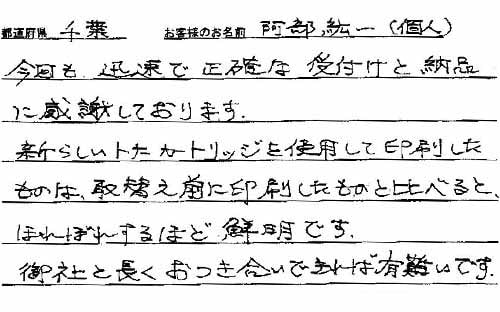 都道府県 千葉 お客様のお名前 阿部紘一(個人)
今回も、迅速で正確な受付けと納品
に感謝しております。
新らしいトナーカートリッジを使用して印刷した
ものは、取替え前に印刷したものと比べると、
ほれぼれするほど鮮明です。
御社と長くおつき合いできれば有難いです。